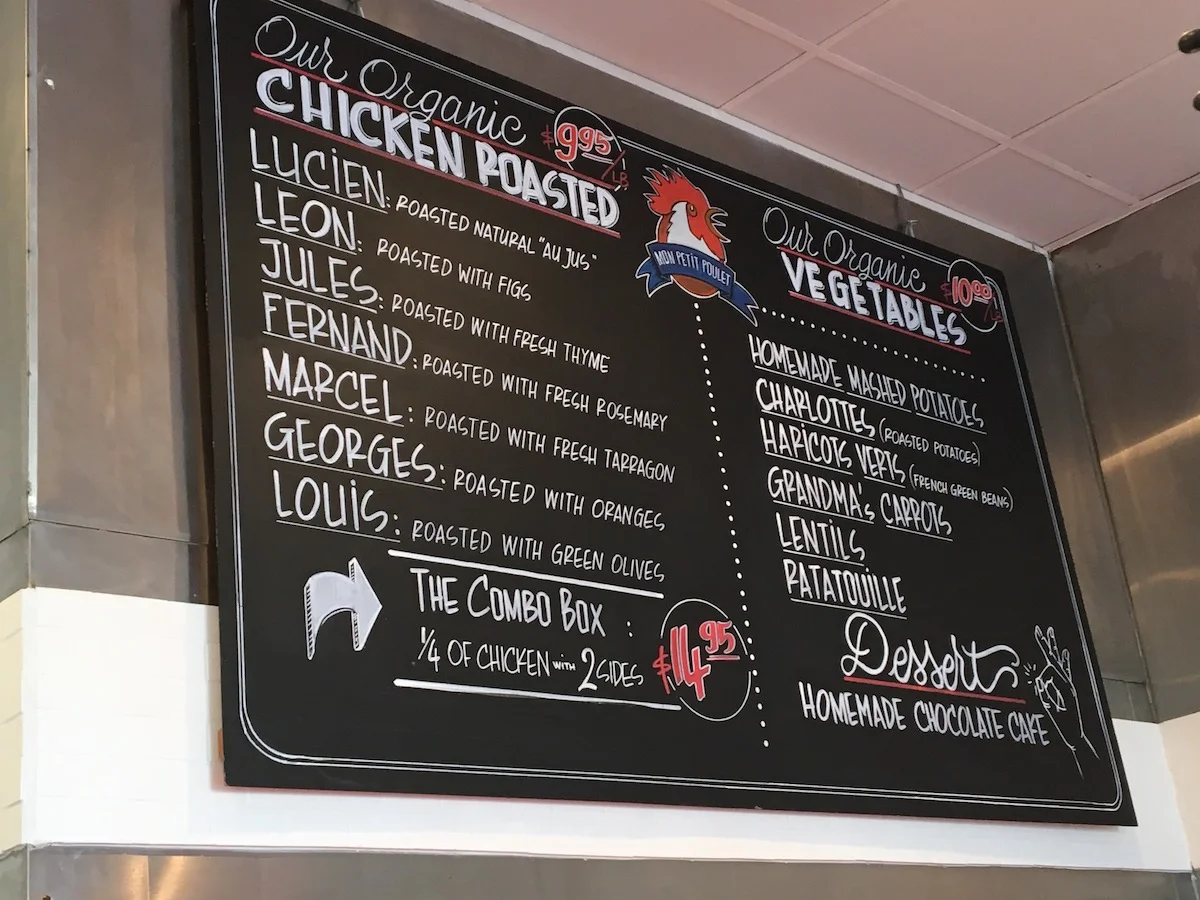 Our Organic
CHICKEN ROASTED
$9.95/LB
LUCIEN: ROASTED NATURAL "AU JUS"
LEON: ROASTED WITH FIGS
JULES: ROASTED WITH FRESH THYME
FERNAND: ROASTED WITH FRESH ROSEMARY
MARCEL: ROASTED WITH FRESH TARRAGON
GEORGES: ROASTED WITH ORANGES
LOUIS: ROASTED WITH GREEN OLIVES
THE COMBO BOX:
1/4 OF CHICKEN WITH 2 SIDES
$14.95
MON PETIT POULET
Our Organic
VEGETABLES
$10.00/LB
HOMEMADE MASHED POTATOES
CHARLOTTES (ROASTED POTATOES)
HARICOTS VERTS (FRENCH GREEN BEANS)
GRANDMA'S CARROTS
LENTILS
RATATOUILLE
Dessert
HOMEMADE CHOCOLATE CAKE